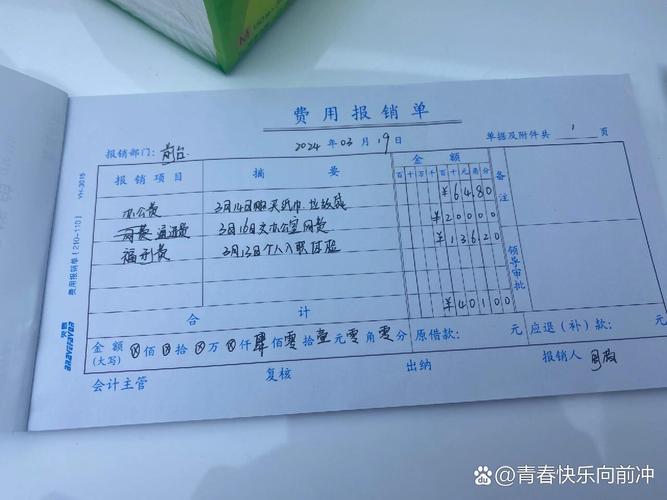 费用报销单
2024年03月19日
单据及附件共 1 页
报销部门：前台
报销项目 摘要 金额 备注
百十万千百十元角分
办公费 3月14日购买纸巾、垃圾袋 ¥6480
网费 通讯费 3月16日交办公室网费 ¥20000
福利费 3月13日个人入职体检 ¥13620
领导审批
合计 ¥40100
金额(大写) 佰 拾 万 仟肆佰零拾壹元零角零分 原借款： 元 应退（补）款： 元
会计主管 复核 出纳 报销人
费用报销单(210-110) YH-3015
M
@青春快乐向前冲